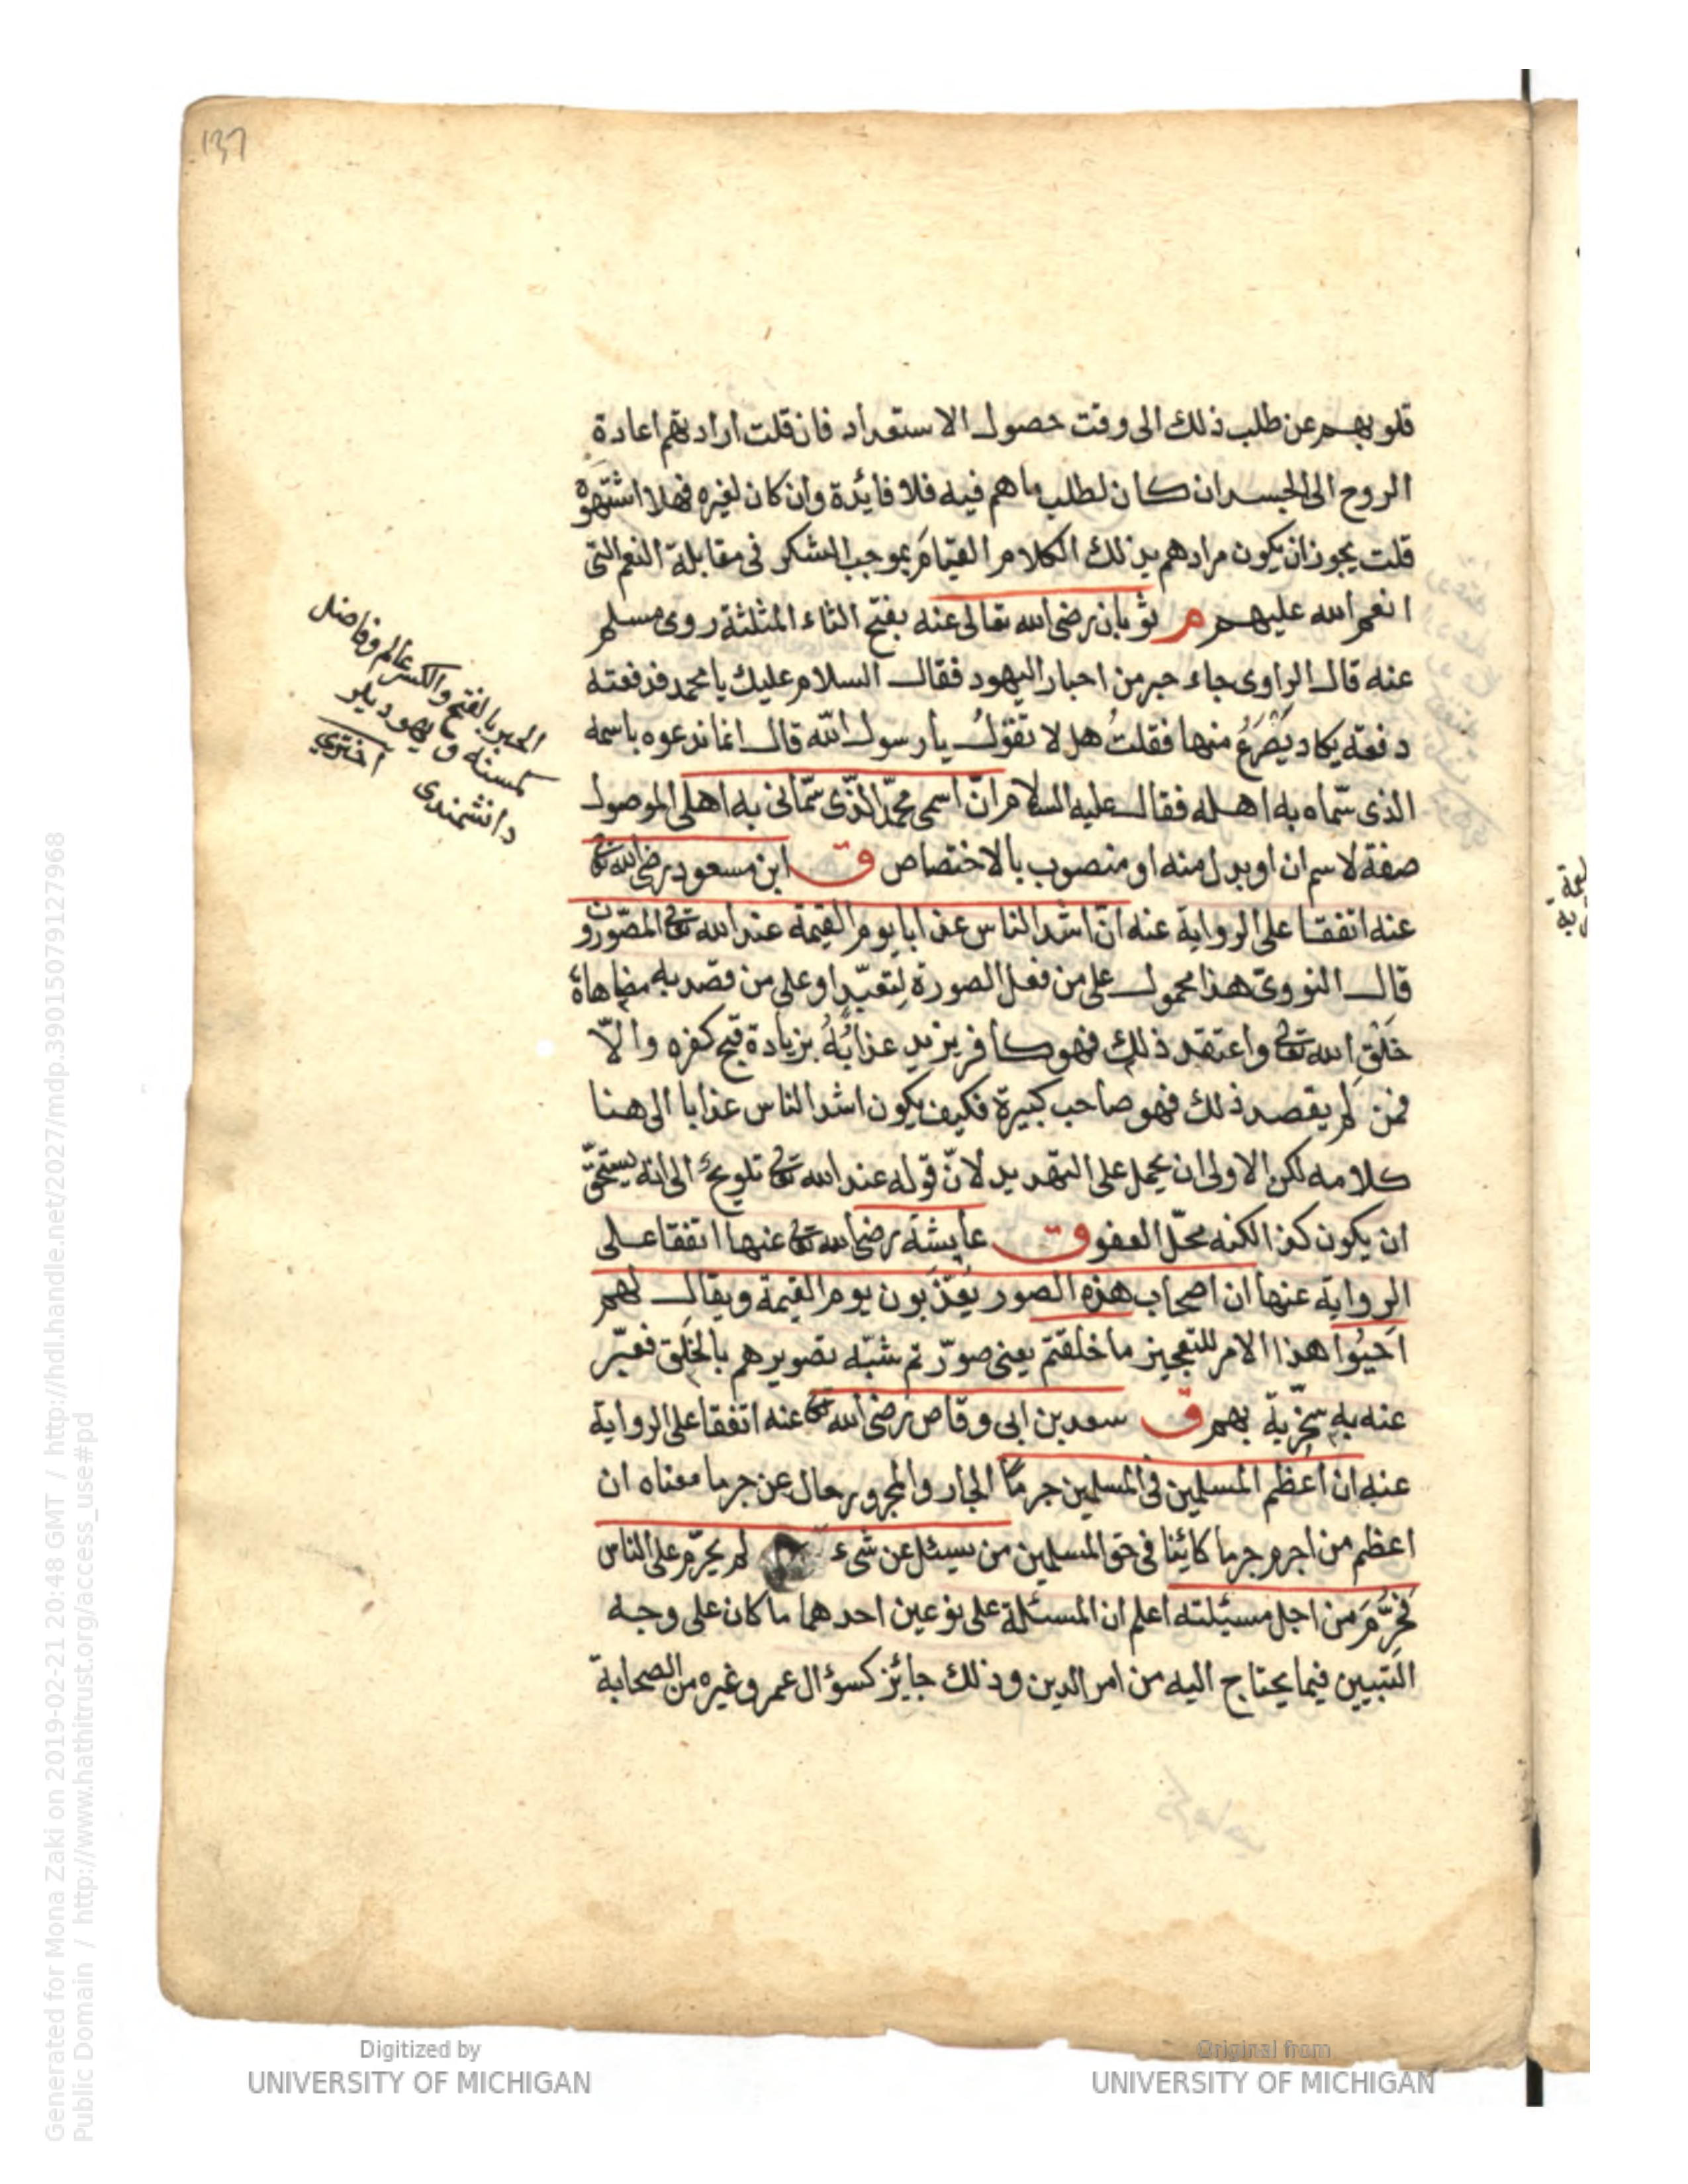 137
قلوبهم عن طلب ذلك الى وقت حصول الاستعداد فان قلت ارادتهم اعادة
الروح الى الجسد ان كان لطلب ما هم فيه فلا فايئدة وان كان لغيره فهلا اشتهوه
قلت يجوز ان يكون مرادهم بذلك الكلام القيامَ بموجب الشكر فى مقابلة النعم التى
انعم الله عليهم م ثوبان رضى الله تعالى عنه بفتح الثاء المثلثة روى مسلم
عنه قال الراوى جاء حبر من احبار اليهود فقال السلام عليك يا محمد فدفعته
دفعة يكاد يُصْرَعُ منها فقلتُ هل لا تقولُ يا رسول الله قال انما ندعوه باسمه
الذى سمّاه به اهله فقال عليه السلام انّ اسمى محمّد الّذى سمّانى به اهلى الموصول
صفة لاسم ان او بدل منه او منصوب بالاختصاص ق ابن مسعود رضى الله تع
عنه اتفقا على الرواية عنه انّ اشد الناس عذابا يوم القيمة عند الله تع المصّورون
قال النووىّ هذا محمول على من فعل الصورة لِتُعبَد او على من قصد به مضاهاة
خَلْقِ الله تع واعتقد ذلك فهو كافر يزيد عذابُهُ بزيادة قبح كفره والّا
فمن لم يقصد ذلك فهو صاحب كبيرة فكيف يكون اشد الناس عذابا الى هنا
كلامه لكن الاولى ان يحمل على التهديد لانّ قوله عند الله تع تلويحٌ الى انه يستحقّ
ان يكون كذا لكنه محلّ العفو ق عايشة رضى الله تع عنها اتفقا على
الرواية عنها ان اصحاب هذه الصور يُعذّبون يوم القيمة ويقال لهم
اَحيُوا هذا الامر للتعجيز ما خلقتم يعنى صوّرتم شبّه تصويرهم بالخَلق فعبّر
عنه به سخريّة بهم ق سعد بن ابى وقاص رضى الله تع عنه اتفقا على الرواية
عنه ان اعظم المسلمين فى المسلمين جرمًا الجار والمجرور حال عن جرما معناه ان
اعظم من اجرم جرما كائنا فى حق المسلمين من يسئل عن شىء لم يحرّم على الناس
فحُرِّمَ من اجل مسيئلته اعلم ان المسئلة على نوعين احدهما ما كان على وجه
التبيين فيما يحتاج اليه من امر الدين وذلك جايئز كسؤال عمر وغيره من الصحابة
الحبر بالفتح والكسر عالم وفاضل
كمسنه و يهوديلر
دانشمندى اخترى
Digitized by
UNIVERSITY OF MICHIGAN
Original from
UNIVERSITY OF MICHIGAN
Generated for Mona Zaki on 2019-02-21 20:48 GMT / http://hdl.handle.net/2027/mdp.39015079127968
Public Domain / http://www.hathitrust.org/access_use#pd